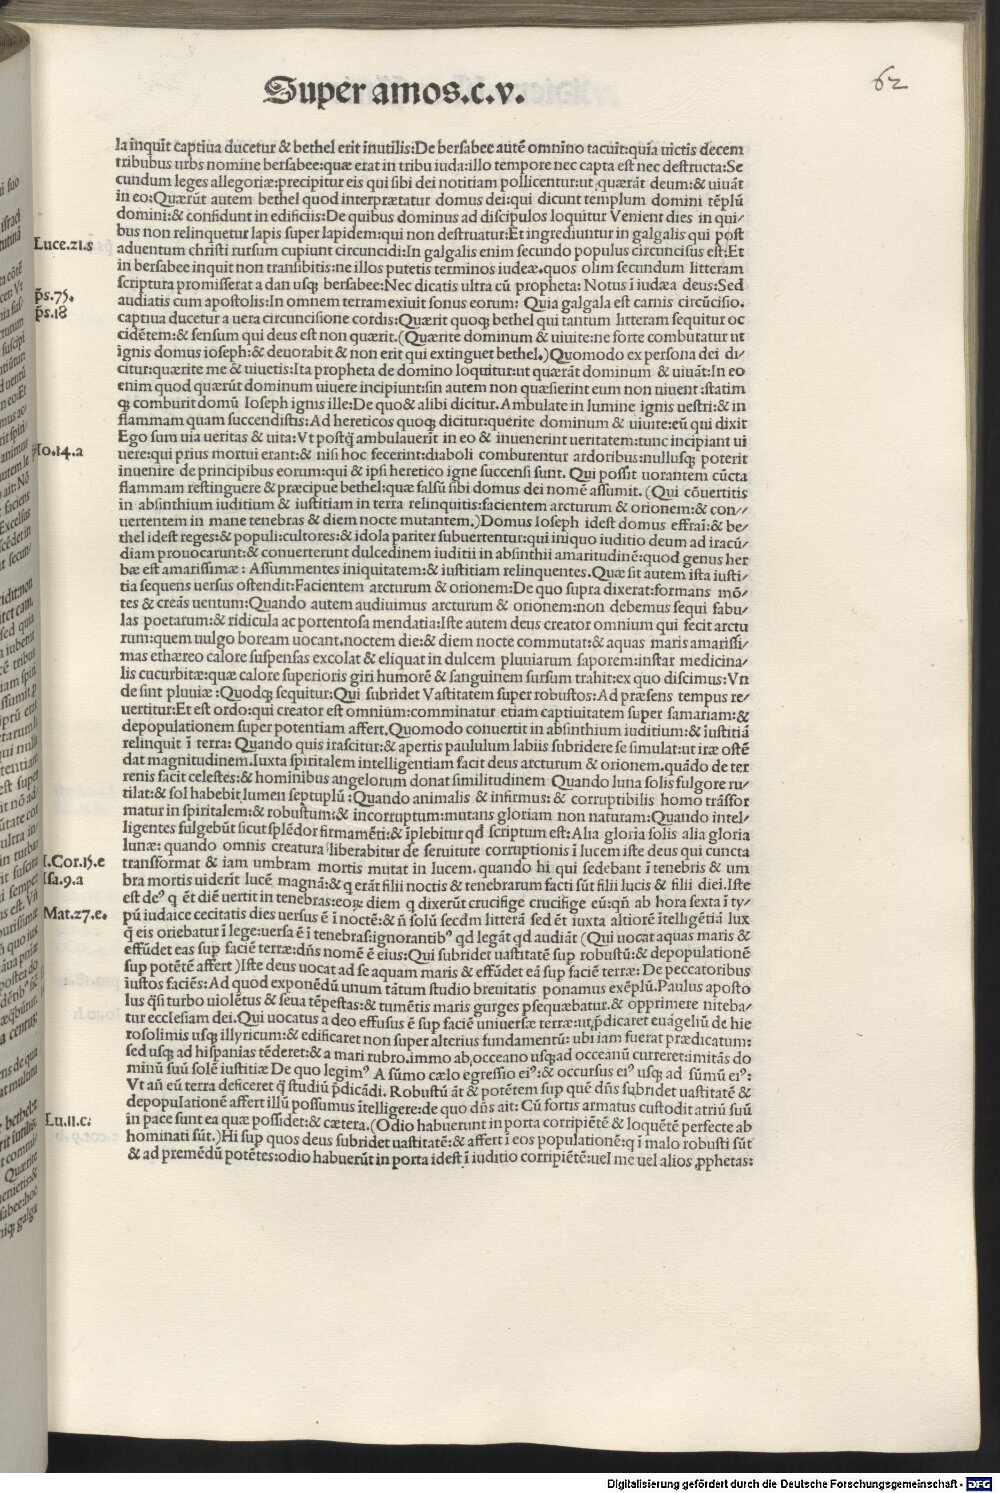 62
Super amos.c.v.
la īnquit captiua ducetur & bethel erit īnutilis:De bersabee autē omnīno tacuit:quia uictis decem
tribubus urbs nomine bersabee:quæ erat in tribu iuda:illo tempore nec capta est nec destructa:Se
cundum leges allegoriæ:precipitur eis qui sibi dei notitiam pollicentur:ut quærāt deum:& uiuāt
in eo:Quærūt autem bethel quod interprætatur domus dei:qui dicunt templum domini tēplū
domini:& confidunt in edificiis:De quibus dominus ad discipulos loquitur Venient dies in qui/
bus non relinquetur lapis super lapidem:qui non destruatur:Et ingrediuntur in galgalis qui post
Luce.21.s
aduentum christi rursum cupiunt circuncidi:In galgalis enim secundo populus circuncisus est:Et
in bersabee inquit non transibitis:ne illos putetis terminos iudeæ.quos olim secundum litteram
scriptura promisserat a dan usqȝ bersabee:Nec dicatis ultra cū propheta: Notus ī iudæa deus:Sed
p̄s.75.
audiatis cum apostolis:In omnem terram exiuit sonus eorum: Quia galgala est carnis circūcisio.
p̄s.18
captiua ducetur a uera circuncisione cordis:Quærit quoqȝ bethel qui tantum litteram sequitur oc
cidētem:& sensum qui deus est non quærit.(Quærite dominum & uiuite:ne forte combutatur ut
ignis domus ioseph:& deuorabit & non erit qui extinguet bethel.)Quomodo ex persona dei di/
citur:quærite me & uiuetis:Ita propheta de domino loquitur:ut quærāt dominum & uiuāt:In eo
enim quod quærūt dominum uiuere incipiunt:sin autem non quæsierint eum non uiuent:statim
qȝ comburit domū Ioseph ignis ille:De quo & alibi dicitur.Ambulate in lumine ignis uestri:& in
flammam quam succendistis:Ad hereticos quoqȝ dicitur:querite dominum & uiuite:eū qui dixit
Ego sum uia ueritas & uita:Vt postq̄ ambulauerīt in eo & inuenerint ueritatem:tunc incipiant ui
Io.14.a
uere:qui prius mortui erant:& nisi hoc fecerint:diaboli comburentur ardoribus:nullusqȝ poterit
inuenire de principibus eorum:qui & ipsi heretico igne succensi sunt. Qui possit uorantem cūcta
flammam restinguere & præcipue bethel:quæ falsū sibi domus dei nomē assumit. (Qui cōuertitis
in absinthium iuditium & iustitiam in terra relinquitis:facientem arcturum & orionem:& con//
uertentem in mane tenebras & diem nocte mutantem.)Domus Ioseph idest domus effraī:& be/
thel idest reges:& populi:cultores:& idola pariter subuertentur:qui iniquo iuditio deum ad iracū/
diam prouocarunt:& conuerterunt dulcedinem iuditii in absinthii amaritudinē:quod genus her
bæ est amarissimæ: Assummentes iniquitatem:& iustitiam relinquentes.Quæ sit autem ista iusti/
tia sequens uersus ostendit:Facientem arcturum & orionem:De quo supra dixerat:formans mō/
tes & creās uentum:Quando autem audiuimus arcturum & orionem:non debemus sequi fabu/
las poetarum:& ridicula ac portentosa mendatia:Iste autem deus creator omnium qui fecit arctu
rum:quem uulgo boream uocant.noctem die:& diem nocte commutat:& aquas maris amarissi/
mas ethæreo calore suspensas excolat & eliquat in dulcem pluuiarum saporem:instar medicina/
lis cucurbitæ:quæ calore superioris giri humorē & sanguinem sursum trahit:ex quo discimus:Vn
de sint pluuiæ :Quodqȝ sequitur:Qui subridet Vastitatem super robustos:Ad præsens tempus re/
uertitur:Et est ordo:qui creator est omnium:comminatur etiam captiuitatem super samariam:&
depopulationem super potentiam affert.Quomodo conuertit in absinthium iuditium:& iustitiā
relinquit ī terra: Quando quis irascitur:& apertis paululum labiis subridere se simulat:ut iræ ostē
dat magnitudinem.Iuxta spiritalem intelligentiam facit deus arcturum & orionem.quādo de ter
renis facit celestes:& hominibus angelorum donat similitudinem Quando luna solis fulgore ru/
tilat:& sol habebit lumen septuplū:Quando animalis & infirmus: & corruptibilis homo trāsfor
matur in spiritalem:& robustum:& incorruptum:mutans gloriam non naturam:Quando intel/
ligentes fulgebūt sicut splēdor firmamēti:& īplebitur qd̄ scriptum est:Alia gloria solis alia gloria
lunæ: quando omnis creatura liberabitur de seruitute corruptionis ī lucem iste deus qui cuncta
I.Cor.15.e
transformat & iam umbram mortis mutat in lucem.quando hi qui sedebant ī tenebris & um
Isa.9.a
bra mortis uiderīt lucē magnā:& q erāt filii noctis & tenebrarum facti sūt filii lucis & filii diei.Iste
est deꝰ q ēt diē uertit in tenebras:eoꝝ diem q dixerūt crucifige crucifige eū:qn̄ ab hora sexta ī ty/
Mat.27.e.
pū iudaice cecitatis dies uersus ē ī noctē:& n̄ solū secdm litterā sed ēt iuxta altiorē ītelligētiā lux
q̄ eis oriebatur ī lege:uersa ē ī tenebras:ignorantibꝰ qd legāt qd audiāt (Qui uocat aquas maris &
effūdet eas sup faciē terræ:dn̄s nomē ē eius:Qui subridet uastitatē sup robustū:& depopulationē
sup potētē affert )Iste deus uocat ad se aquam maris & effūdet eā sup faciē terræ: De peccatoribus
iustos faciēs:Ad quod exponēdū unum tātum studio breuitatis ponamus exēplū.Paulus aposto
lus q̄si turbo uiolētus & seua tēpestas:& tumētis maris gurges psequæbatur.& opprimere niteba/
tur ecclesiam dei.Qui uocatus a deo effusus ē sup faciē uniuersæ terræ:ut p̄dicaret euāgeliū de hie
rosolimis usqȝ illyricum:& edificaret non super alterius fundamentū: ubi iam fuerat prædicatum:
sed usqȝ ad hispanias tēderet:& a mari rubro.immo ab occeano usqȝ ad occeanū curreret:imitās do
minū suū solē iustitiæ De quo legimꝰ A sūmo cælo egressio eiꝰ:& occursus eiꝰ usqȝ ad sūmū eiꝰ:
Vt an̄ eū terra deficeret q̄ studiū p̄dicādi. Robustū āt & potētem sup quē dn̄s subridet uastitatē &
depopulationē affert illū possumus ītelligere:de quo dn̄s ait: Cū fortis armatus custodit atriū suū
Lu.11.c.
in pace sunt ea quæ possidet:& cætera.(Odio habuerunt in porta corripiētē & loquētē perfecte ab
hominati sūt.)Hi sup quos deus subridet uastitatē:& affert ī eos populationē:q ī malo robusti sūt
& ad premēdū potētes:odio habuerūt in porta idest ī iuditio corripiētē:uel me uel alios ꝓphetas:
Digitalisierung gefördert durch die Deutsche Forschungsgemeinschaft - DFG